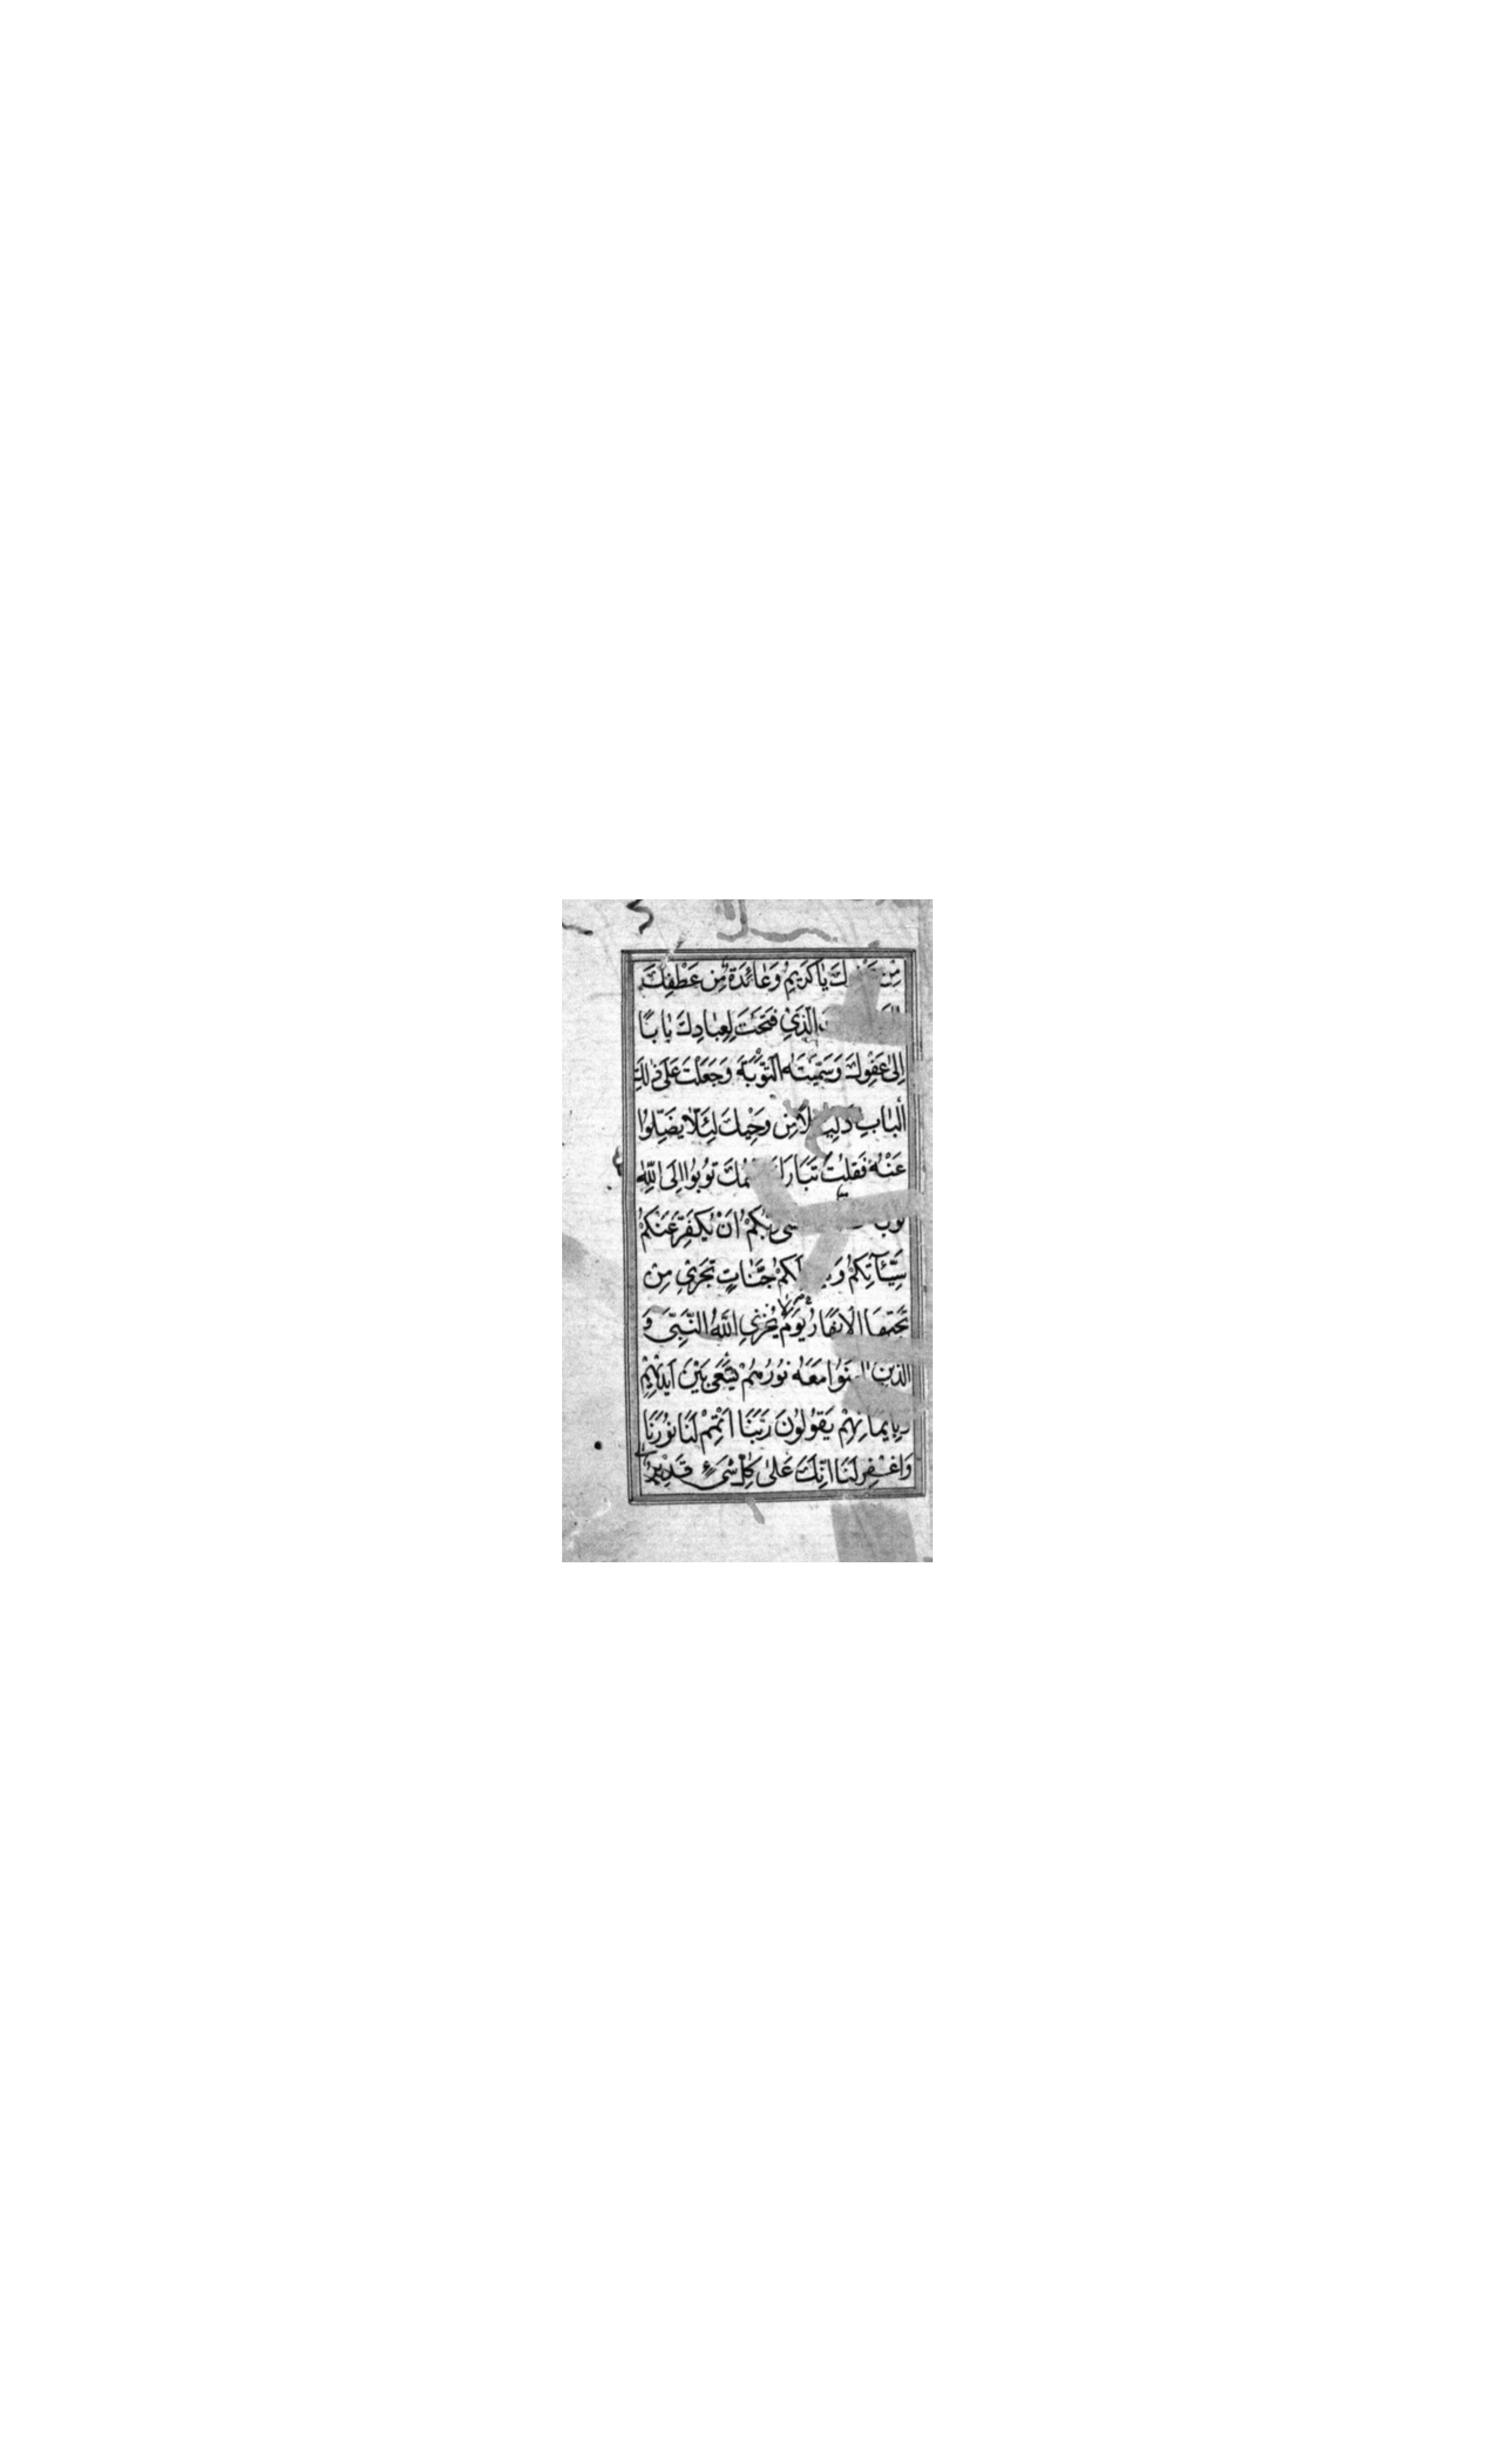 مِنْ يَا كَرِيمُ وَعَائِدَةٌ مِنْ عَطْفِكَ
الَّذِي فَتَحْتَ لِعِبَادِكَ بَابًا
اِلىٰ عَفْوِكَ وَسَمَّيْتَهُ التَّوْبَةَ وَجَعَلْتَ عَلىٰ ذٰلِكَ
الْبَابِ مِنْ وَحْيِكَ لِئَلَّا يَضِلُّوا
عَنْهُ فَقُلْتَ تُوبُوا اِلَى اللّٰهِ
اَنْ يُكَفِّرَ عَنْكُمْ
سَيِّئَاتِكُمْ جَنَّاتٍ تَجْرِي مِنْ
تَحْتِهَا الْاَنْهَارُ يَوْمَ لَا يُخْزِي اللّٰهُ النَّبِيَّ وَ
الَّذِينَ مَعَهُ نُورُهُمْ يَسْعىٰ بَيْنَ اَيْدِيهِمْ
وَبِاَيْمَانِهِمْ يَقُولُونَ رَبَّنَا اَتْمِمْ لَنَا نُورَنَا
وَاغْفِرْ لَنَا اِنَّكَ عَلىٰ كُلِّ شَيْءٍ قَدِيرٌ